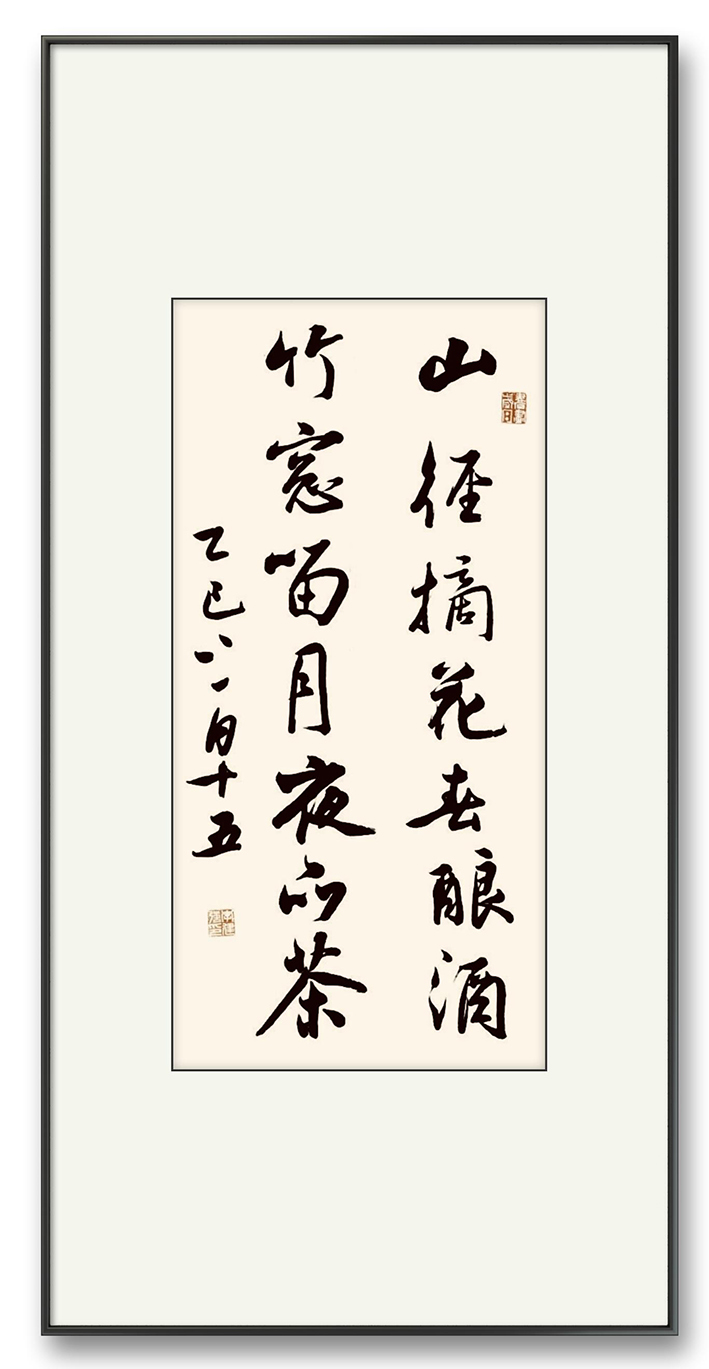 山径摘花春酿酒
竹窓留月夜品茶
乙巳月十五